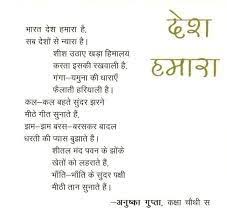 देश
हमारा
भारत देश हमारा है,
सब देशों से न्यारा है।
शीश उठाए खड़ा हिमालय
करता इसकी रखवाली है।
गंगा-यमुना की धाराएँ
फैलाती हरियाली है।
कल-कल बहते सुंदर झरने
मीठे गीत सुनाते हैं,
झम-झम बरस-बरसकर बादल
धरती की प्यास बुझाते है।
शीतल मंद पवन के झोंके
खेतों को लहराते हैं,
भाँति-भाँति के सुंदर पक्षी
मीठी तान सुनाते हैं।
-अनुष्का गुप्ता, कक्षा चौथी स